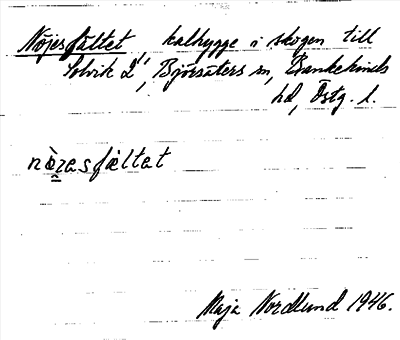 Nöjesfältet, kalhygge i skogen till
Solvik 2', Björsäters sn, Bankekinds
hd, Östg. l.
nözesfältet
Maja Nordlund 1946.